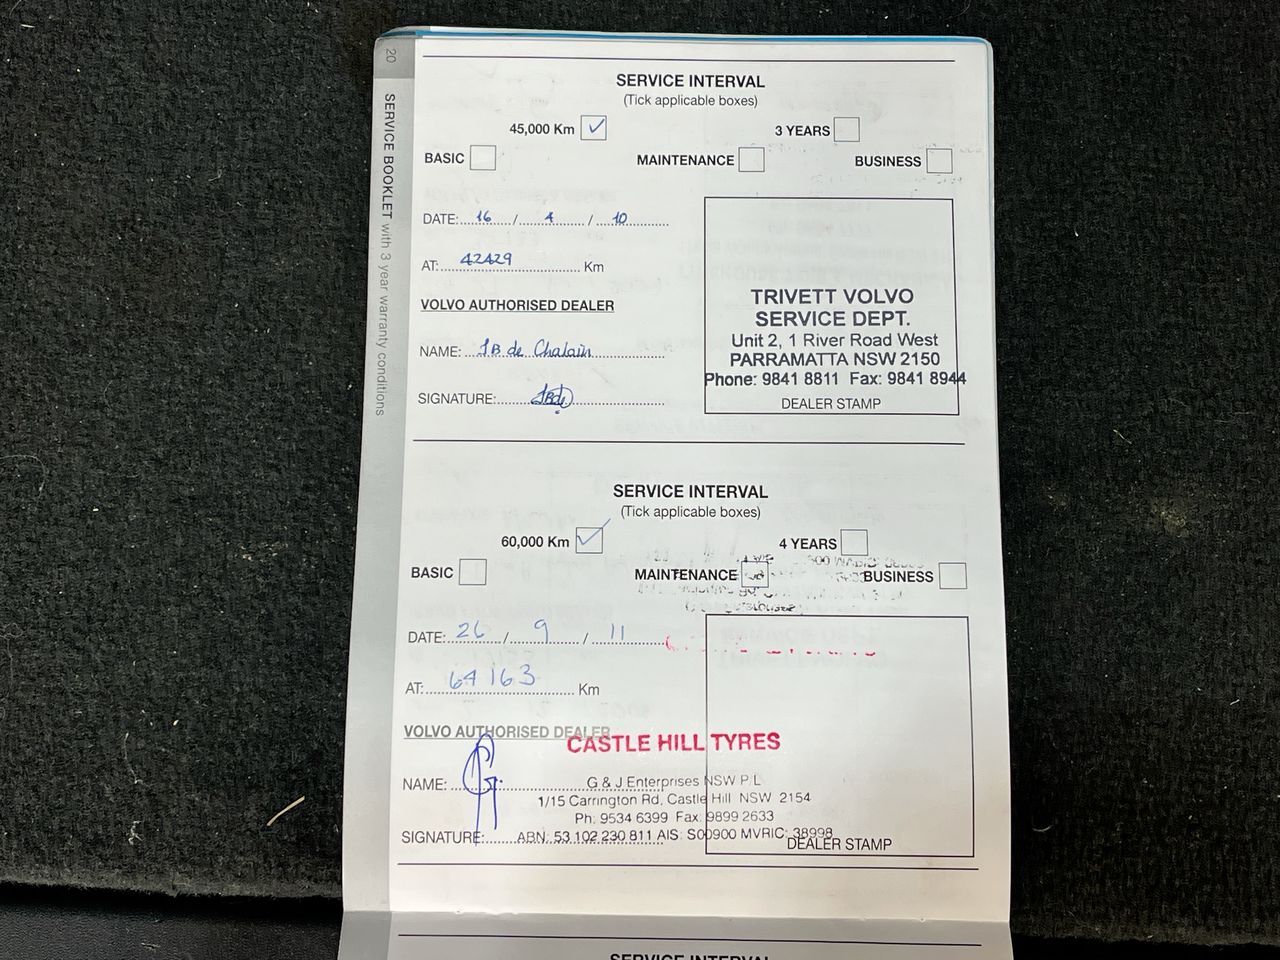 20
SERVICE BOOKLET with 3 year warranty conditions
SERVICE INTERVAL
(Tick applicable boxes)
45,000 Km
3 YEARS
BASIC
MAINTENANCE
BUSINESS
DATE: 16 / 4 / 10
AT: 42429 Km
VOLVO AUTHORISED DEALER
NAME: JB de Chalain
SIGNATURE:
TRIVETT VOLVO
SERVICE DEPT.
Unit 2, 1 River Road West
PARRAMATTA NSW 2150
Phone: 9841 8811 Fax: 9841 8944
DEALER STAMP
SERVICE INTERVAL
(Tick applicable boxes)
60,000 Km
4 YEARS
BASIC
MAINTENANCE
BUSINESS
DATE: 26 / 9 / 11
AT: 64163 Km
VOLVO AUTHORISED DEALER
CASTLE HILL TYRES
NAME:
G & J Enterprises NSW P/L
1/15 Carrington Rd, Castle Hill NSW 2154
Ph: 9534 6399 Fax: 9899 2633
SIGNATURE:
ABN: 53 102 230 811 AIS: S00900 MVRIC: 38998
DEALER STAMP
SERVICE INTERVAL